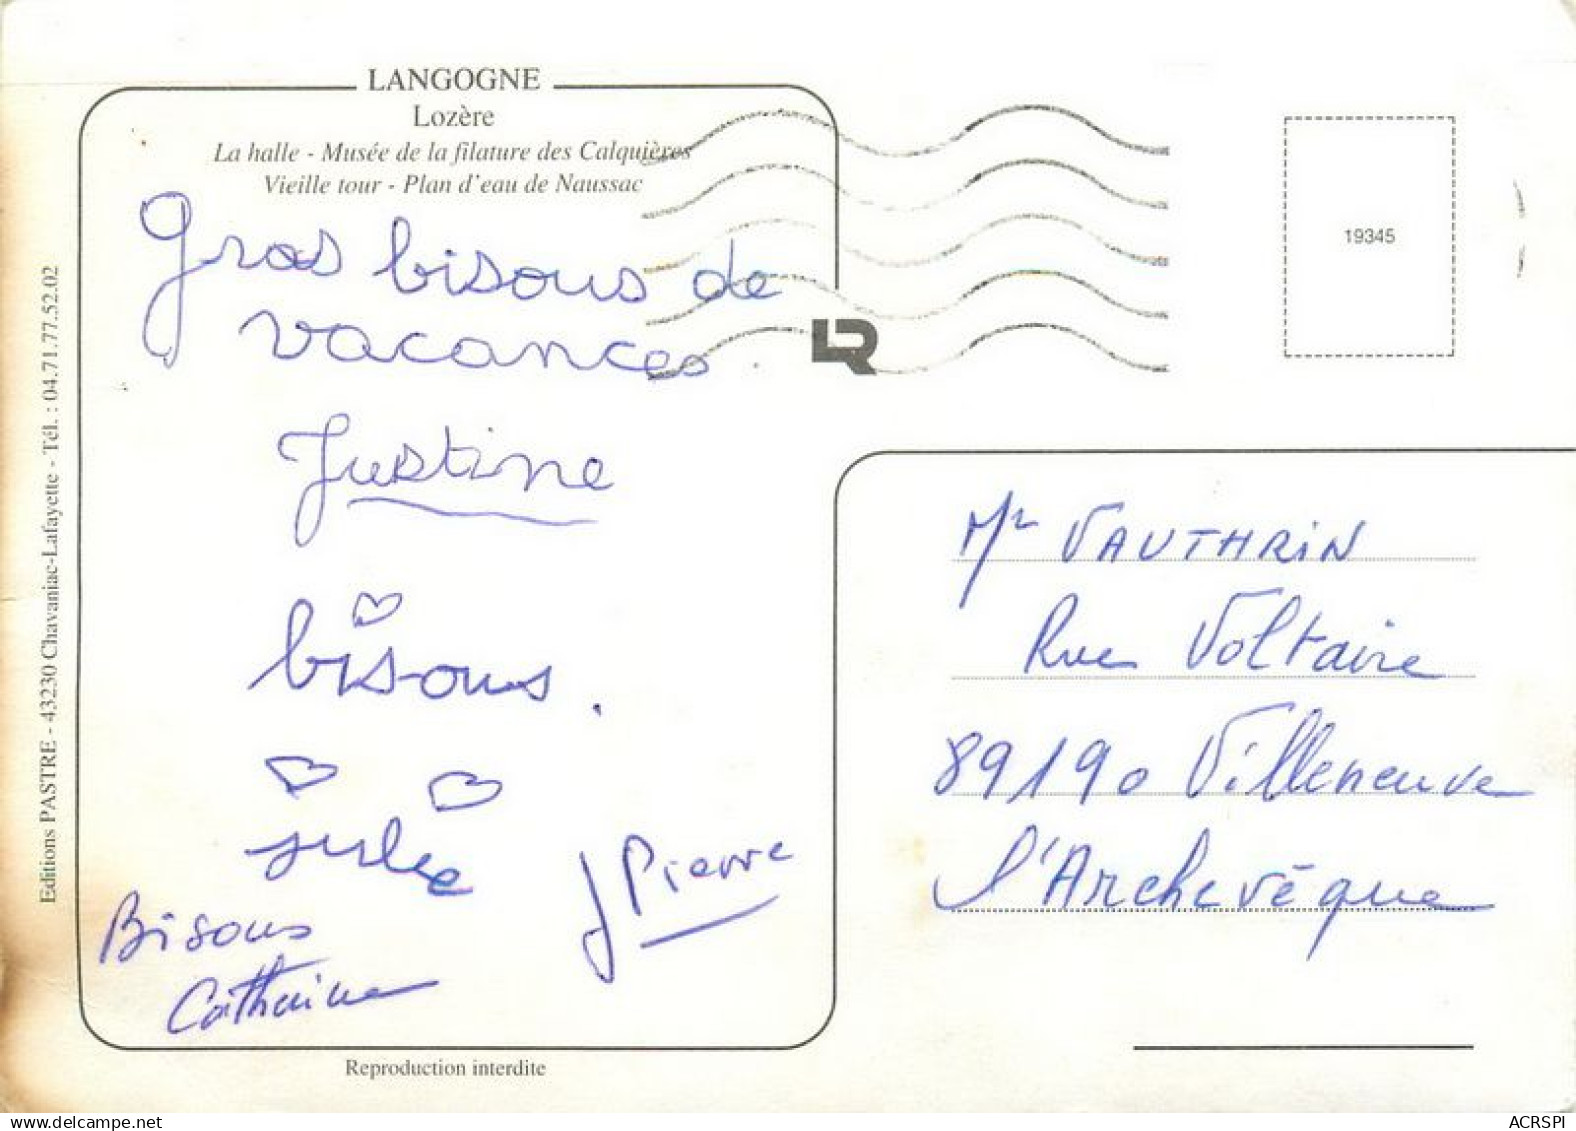 LANGOGNE
Lozère
La halle - Musée de la filature des Calquières
Vieille tour - Plan d'eau de Naussac
Gros bisous de
vacances.
Justine
bisous.
julie
J Pierre
Bisous
Catherine
Reproduction interdite
Editions PASTRE - 43230 Chavaniac-Lafayette - Tél. : 04.71.77.52.02
LR
19345
Mr VAUTHRIN
Rue Voltaire
89190 Villeneuve
l'Archevêque
ACRSPI